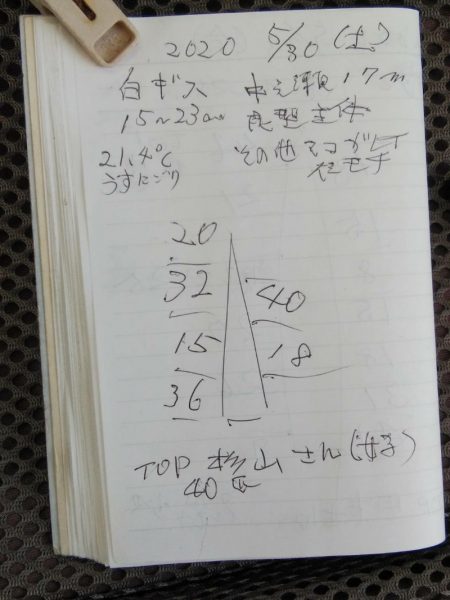 2020 5/30 (土)
白ギス 中之瀬 17m
15~23cm 良型主体
21.4℃ その他 マコガレイ
うすにごり イシモチ
20
32 40
15 18
36
TOP 杉山さん(女子)
40匹